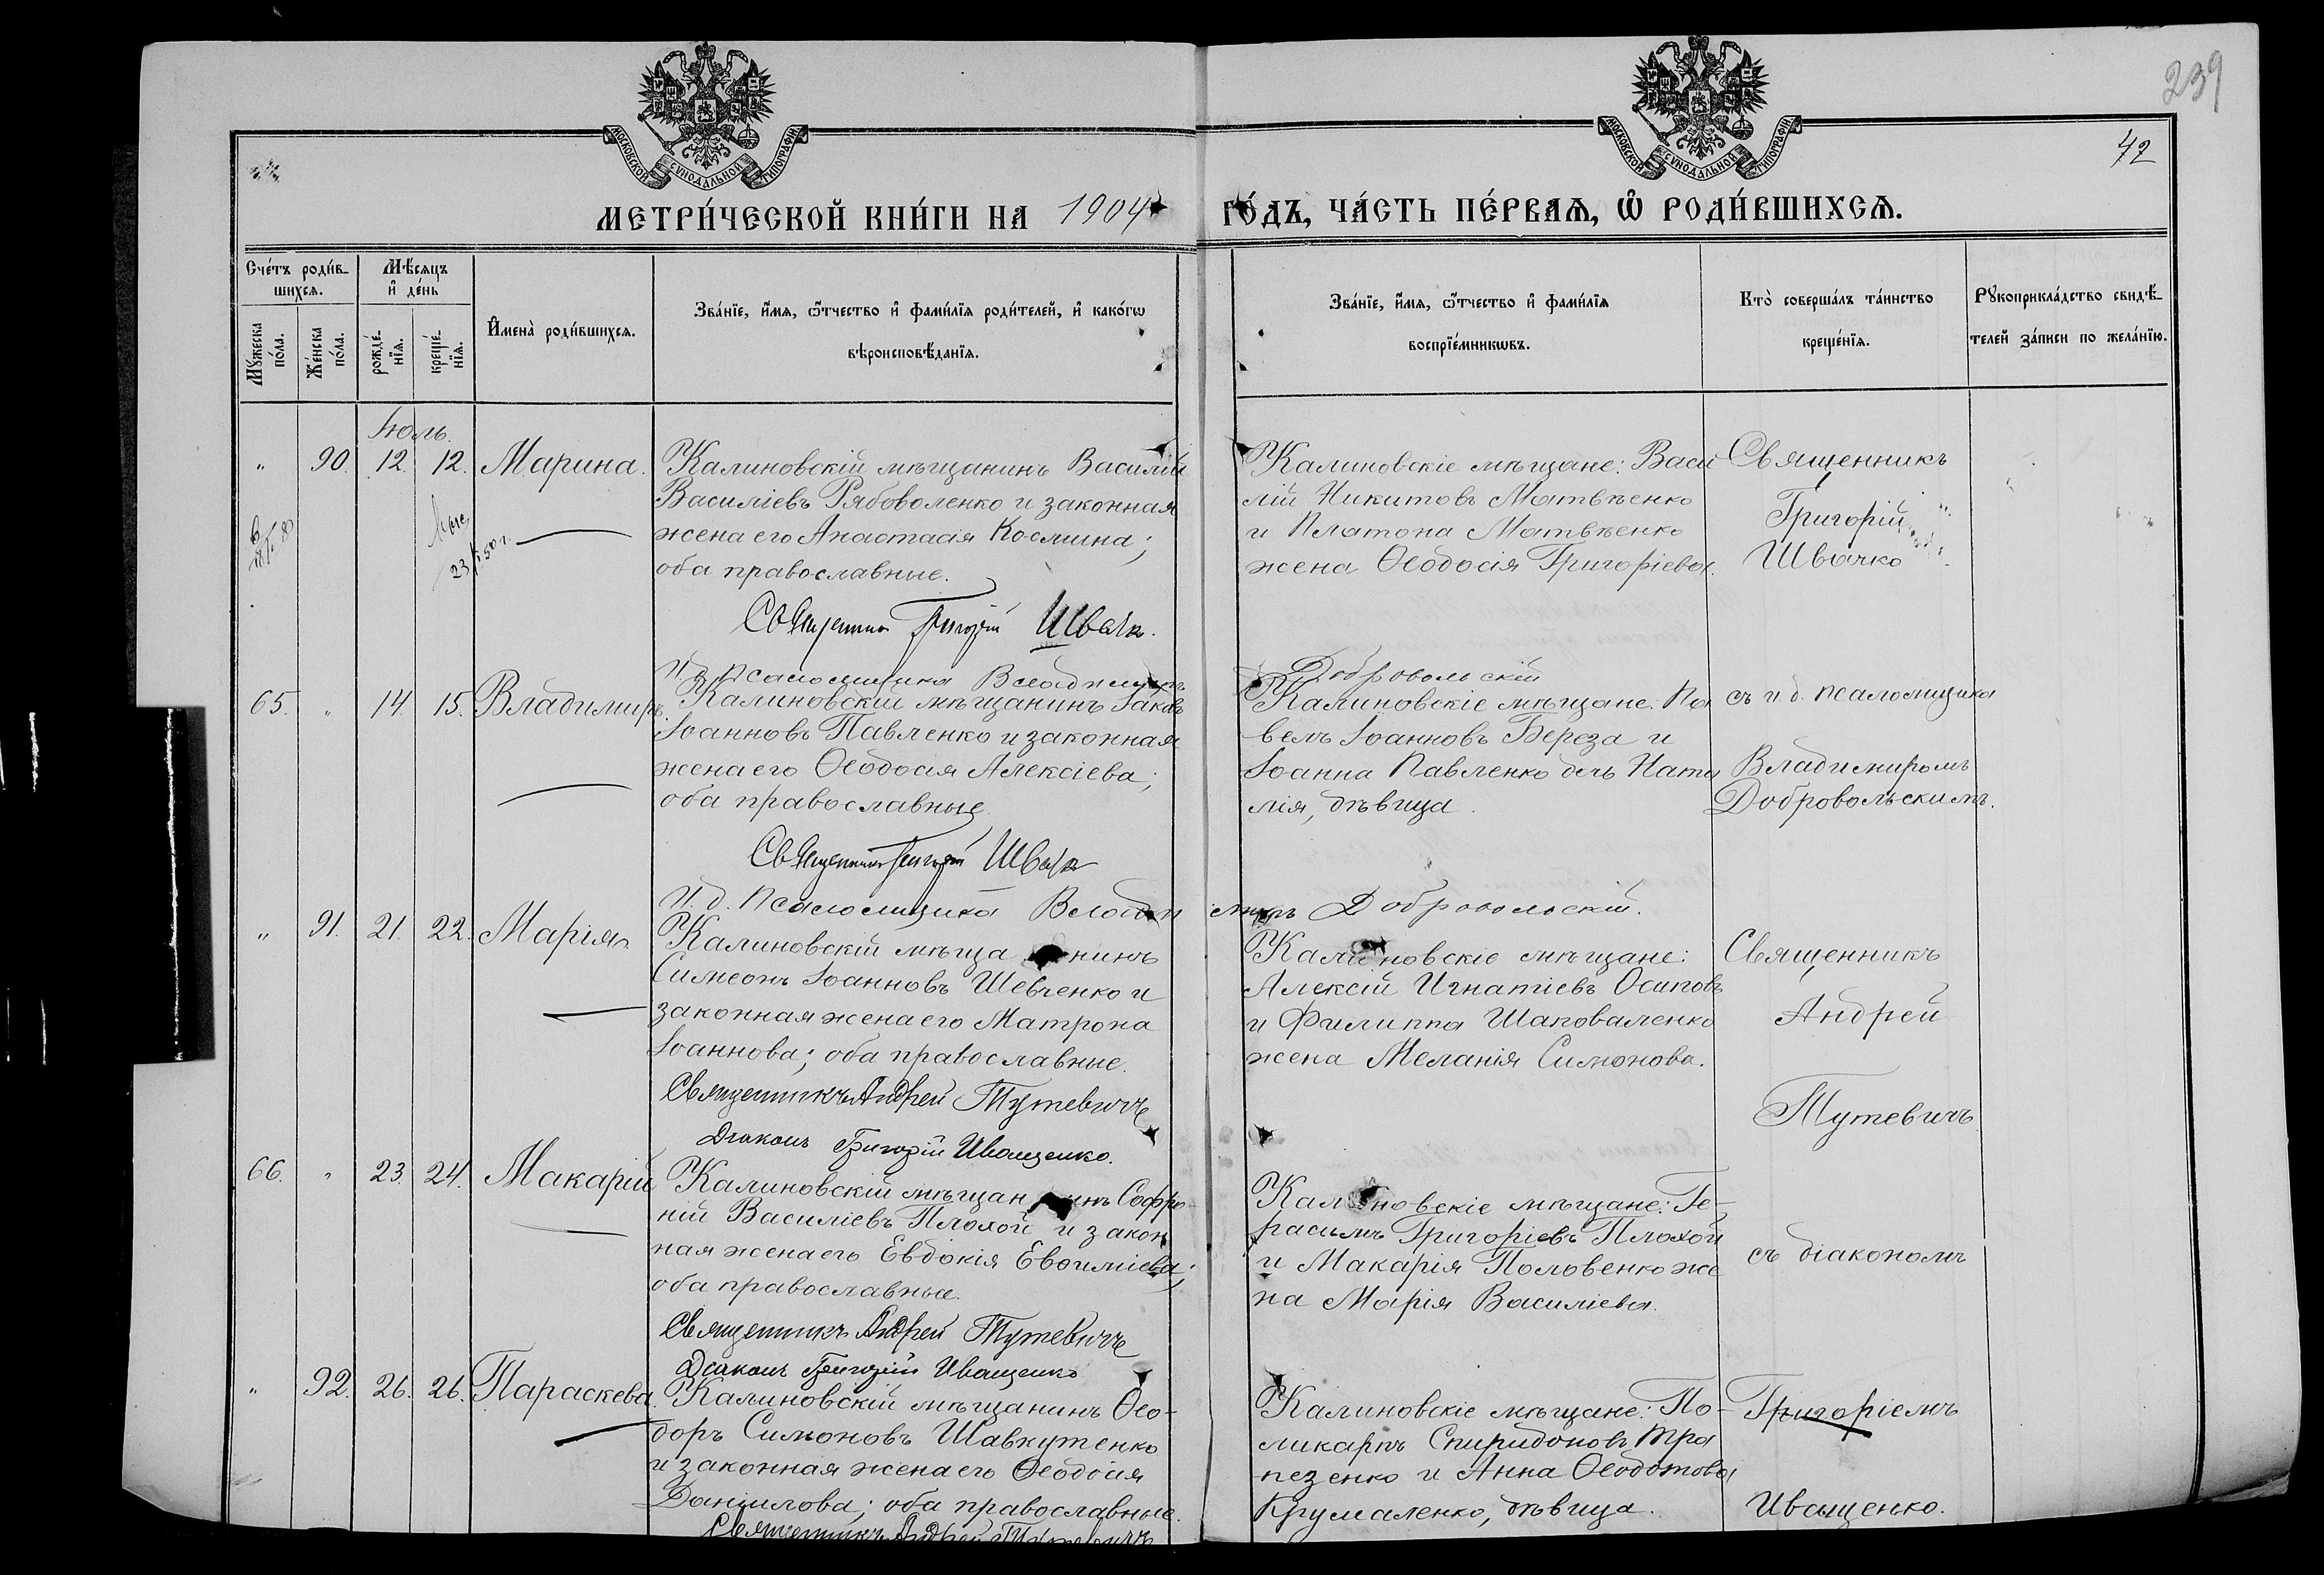 239
42
МОСКОВСКОЙ СѴНОДАЛЬНОЙ ТИПОГРАФІИ
МОСКОВСКОЙ СѴНОДАЛЬНОЙ ТИПОГРАФІИ
МЕТРИ́ЧЕСКОЙ КНИ́ГИ НА 1904 ГО́ДЪ, ЧА́СТЬ ПЕ́РВАЯ, Ѡ РОДИ́ВШИХСЯ.
Сче́тъ роди́в-
шихся.
Мꙋ́жеска по́ла.
Же́нска по́ла.
Мѣ́сяцъ и де́нь
рожде́-
нїя.
креще́-
нїя.
Имена̀ роди́вшихся.
Зва́нїе, и́мя, ѻ́тчество и фами́лїя роди́телей, и како́гѡ
вѣроисповѣ́данїя.
Зва́нїе, и́мя, ѻ́тчество и фами́лїя
воспрїе́мникѡвъ.
Кто̀ соверша́лъ та́инство
креще́нїя.
Рꙋкоприкла́дство свидѣ́-
телей за́писи по жела́нїю.
Іюль.
" 90. 12. 12. Марина.
Калиновскій мѣщанинъ Василій
Василіевъ Рябоволенко и законная
жена его Анастасія Космина;
оба православные.
Священникъ Григорій Швачк.
Калиновскіе мѣщане: Васи
лій Никитовъ Матвѣенко
и Платона Матвѣенко
жена Ѳеодосія Григоріева.
Священникъ
Григорій
Швачко
23 50 г.
И. д. Псаломщика Владимиръ Добровольскій
65. " 14. 15. Владимиръ.
Калиновскій мѣщанинъ Іаковъ
Іоанновъ Павленко и законная
жена его Ѳеодосія Алексіева;
оба православные.
Священникъ Григорій Швачк
Калиновскіе мѣщане: Па
велъ Іоанновъ Береза и
Іоанна Павленко дочь Ната
лія, дѣвица.
съ и. д. псаломщика
Владимиромъ
Добровольскимъ.
И. д. Псаломщика Владимиръ Добровольскій.
" 91. 21. 22. Марія.
Калиновскій мѣщанинъ
Симеонъ Іоанновъ Шевченко и
законная жена его Матрона
Іоаннова; оба православные.
Священникъ Андрей Тутевичъ
Діаконъ Григорій Иващенко.
Калиновскіе мѣщане:
Алексій Игнатіевъ Осиповъ
и Филиппа Шаповаленко
жена Меланія Симонова.
Священникъ
Андрей
Тутевичъ
66. " 23. 24. Макарій
Калиновскій мѣщанинъ Софро
ній Василіевъ Плохой и закон
ная жена его Евдокія Евѳиміева;
оба православные.
Священникъ Андрей Тутевичъ
Діаконъ Григорій Иващенко
Калиновскіе мѣщане: Ге-
расимъ Григоріевъ Плохой
и Макарія Половенко же
на Марія Василіева.
съ діакономъ
" 92. 26. 26. Параскева.
Калиновскій мѣщанинъ Ѳео-
доръ Симоновъ Шавкутенко
и законная жена его Ѳеодосія
Даніилова; оба православные.
Священникъ Андрей Тутевичъ
Калиновскіе мѣщане: По-
ликарпъ Спиридоновъ Тра
пезенко и Анна Ѳеодотова
Крумаленко, дѣвица.
Григоріемъ
Иващенко.